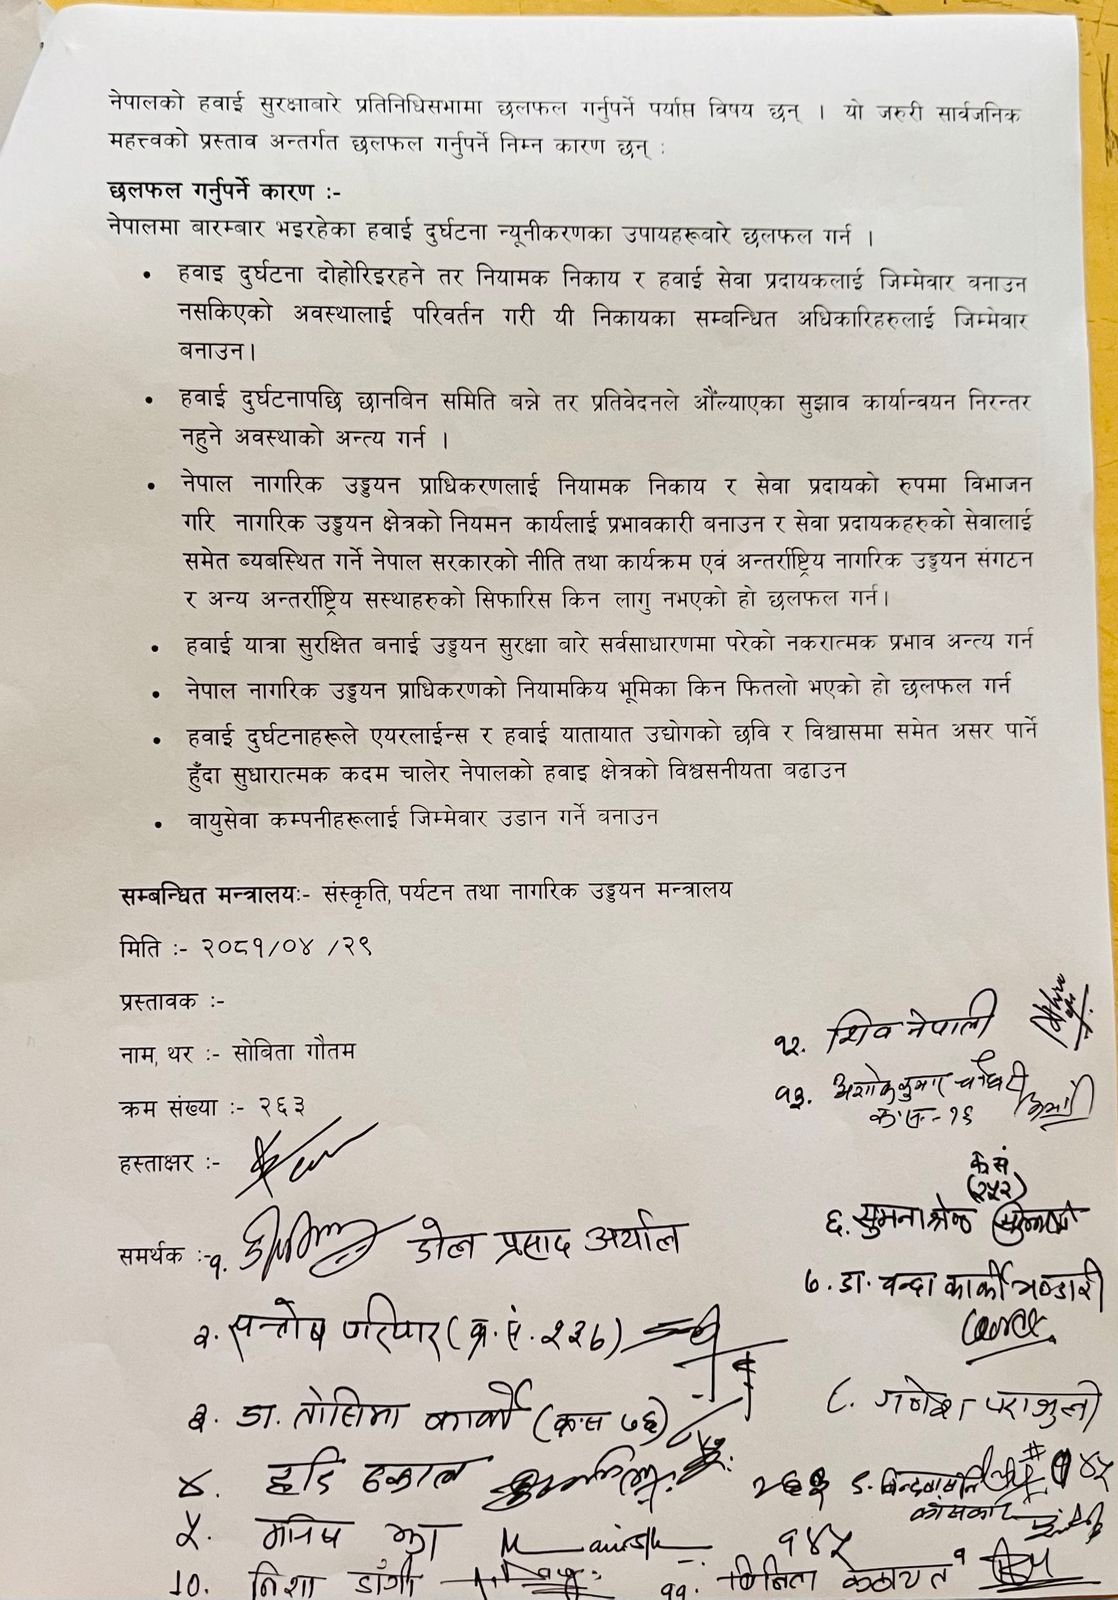 नेपालको हवाई सुरक्षाबारे प्रतिनिधिसभामा छलफल गर्नुपर्ने पर्याप्त विषय छन् । यो जरुरी सार्वजनिक
महत्त्वको प्रस्ताव अन्तर्गत छलफल गर्नुपर्ने निम्न कारण छन् :
छलफल गर्नुपर्ने कारण :-
नेपालमा बारम्बार भइरहेका हवाई दुर्घटना न्यूनीकरणका उपायहरूबारे छलफल गर्न ।
• हवाइ दुर्घटना दोहोरिइरहने तर नियामक निकाय र हवाई सेवा प्रदायकलाई जिम्मेवार बनाउन
नसकिएको अवस्थालाई परिवर्तन गरी यी निकायका सम्बन्धित अधिकारिहरुलाई जिम्मेवार
बनाउन।
• हवाई दुर्घटनापछि छानबिन समिति बन्ने तर प्रतिवेदनले औंल्याएका सुझाव कार्यान्वयन निरन्तर
नहुने अवस्थाको अन्त्य गर्न ।
• नेपाल नागरिक उड्डयन प्राधिकरणलाई नियामक निकाय र सेवा प्रदायको रुपमा विभाजन
गरि नागरिक उड्डयन क्षेत्रको नियमन कार्यलाई प्रभावकारी बनाउन र सेवा प्रदायकहरुको सेवालाई
समेत ब्यबस्थित गर्ने नेपाल सरकारको नीति तथा कार्यक्रम एवं अन्तर्राष्ट्रिय नागरिक उड्डयन संगठन
र अन्य अन्तर्राष्ट्रिय सस्थाहरुको सिफारिस किन लागु नभएको हो छलफल गर्न।
• हवाई यात्रा सुरक्षित बनाई उड्डयन सुरक्षा बारे सर्वसाधारणमा परेको नकरात्मक प्रभाव अन्त्य गर्न
• नेपाल नागरिक उड्डयन प्राधिकरणको नियामकिय भूमिका किन फितलो भएको हो छलफल गर्न
• हवाई दुर्घटनाहरूले एयरलाईन्स र हवाई यातायात उद्योगको छवि र विश्वासमा समेत असर पार्ने
हुँदा सुधारात्मक कदम चालेर नेपालको हवाइ क्षेत्रको विश्वसनीयता बढाउन
• वायुसेवा कम्पनीहरूलाई जिम्मेवार उडान गर्ने बनाउन
सम्बन्धित मन्त्रालयः- संस्कृति, पर्यटन तथा नागरिक उड्डयन मन्त्रालय
मिति :- २०८१/०४ /२९
प्रस्तावक :-
नाम, थर :- सोविता गौतम
क्रम संख्या :- २६३
हस्ताक्षर :-
१२. शिव नेपाली
१३. अशोककुमार चौधरी
क्र.स.-१६
समर्थक :-१. ढोल प्रसाद अर्याल
२. सन्तोष परियार (क्र. सं. २३७)
३. डा. तोसिमा कार्की (क्र.स ७६)
४. हरि ढकाल
५. मनिष झा Manish १४५
क्र सं
(२५२)
६. सुमना श्रेष्ठ
७. डा. चन्दा कार्की भण्डारी
८. गणेश पराजुली
१०. निशा डाँगी
११. बिनिता कठायत